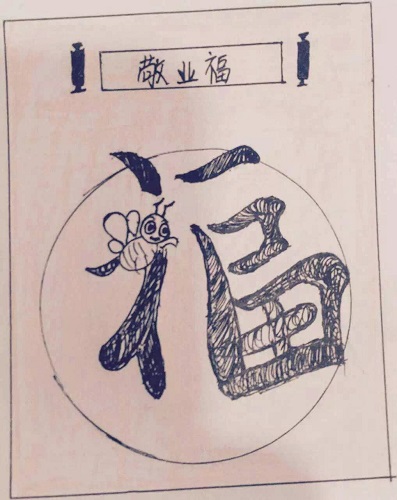 敬业福
福